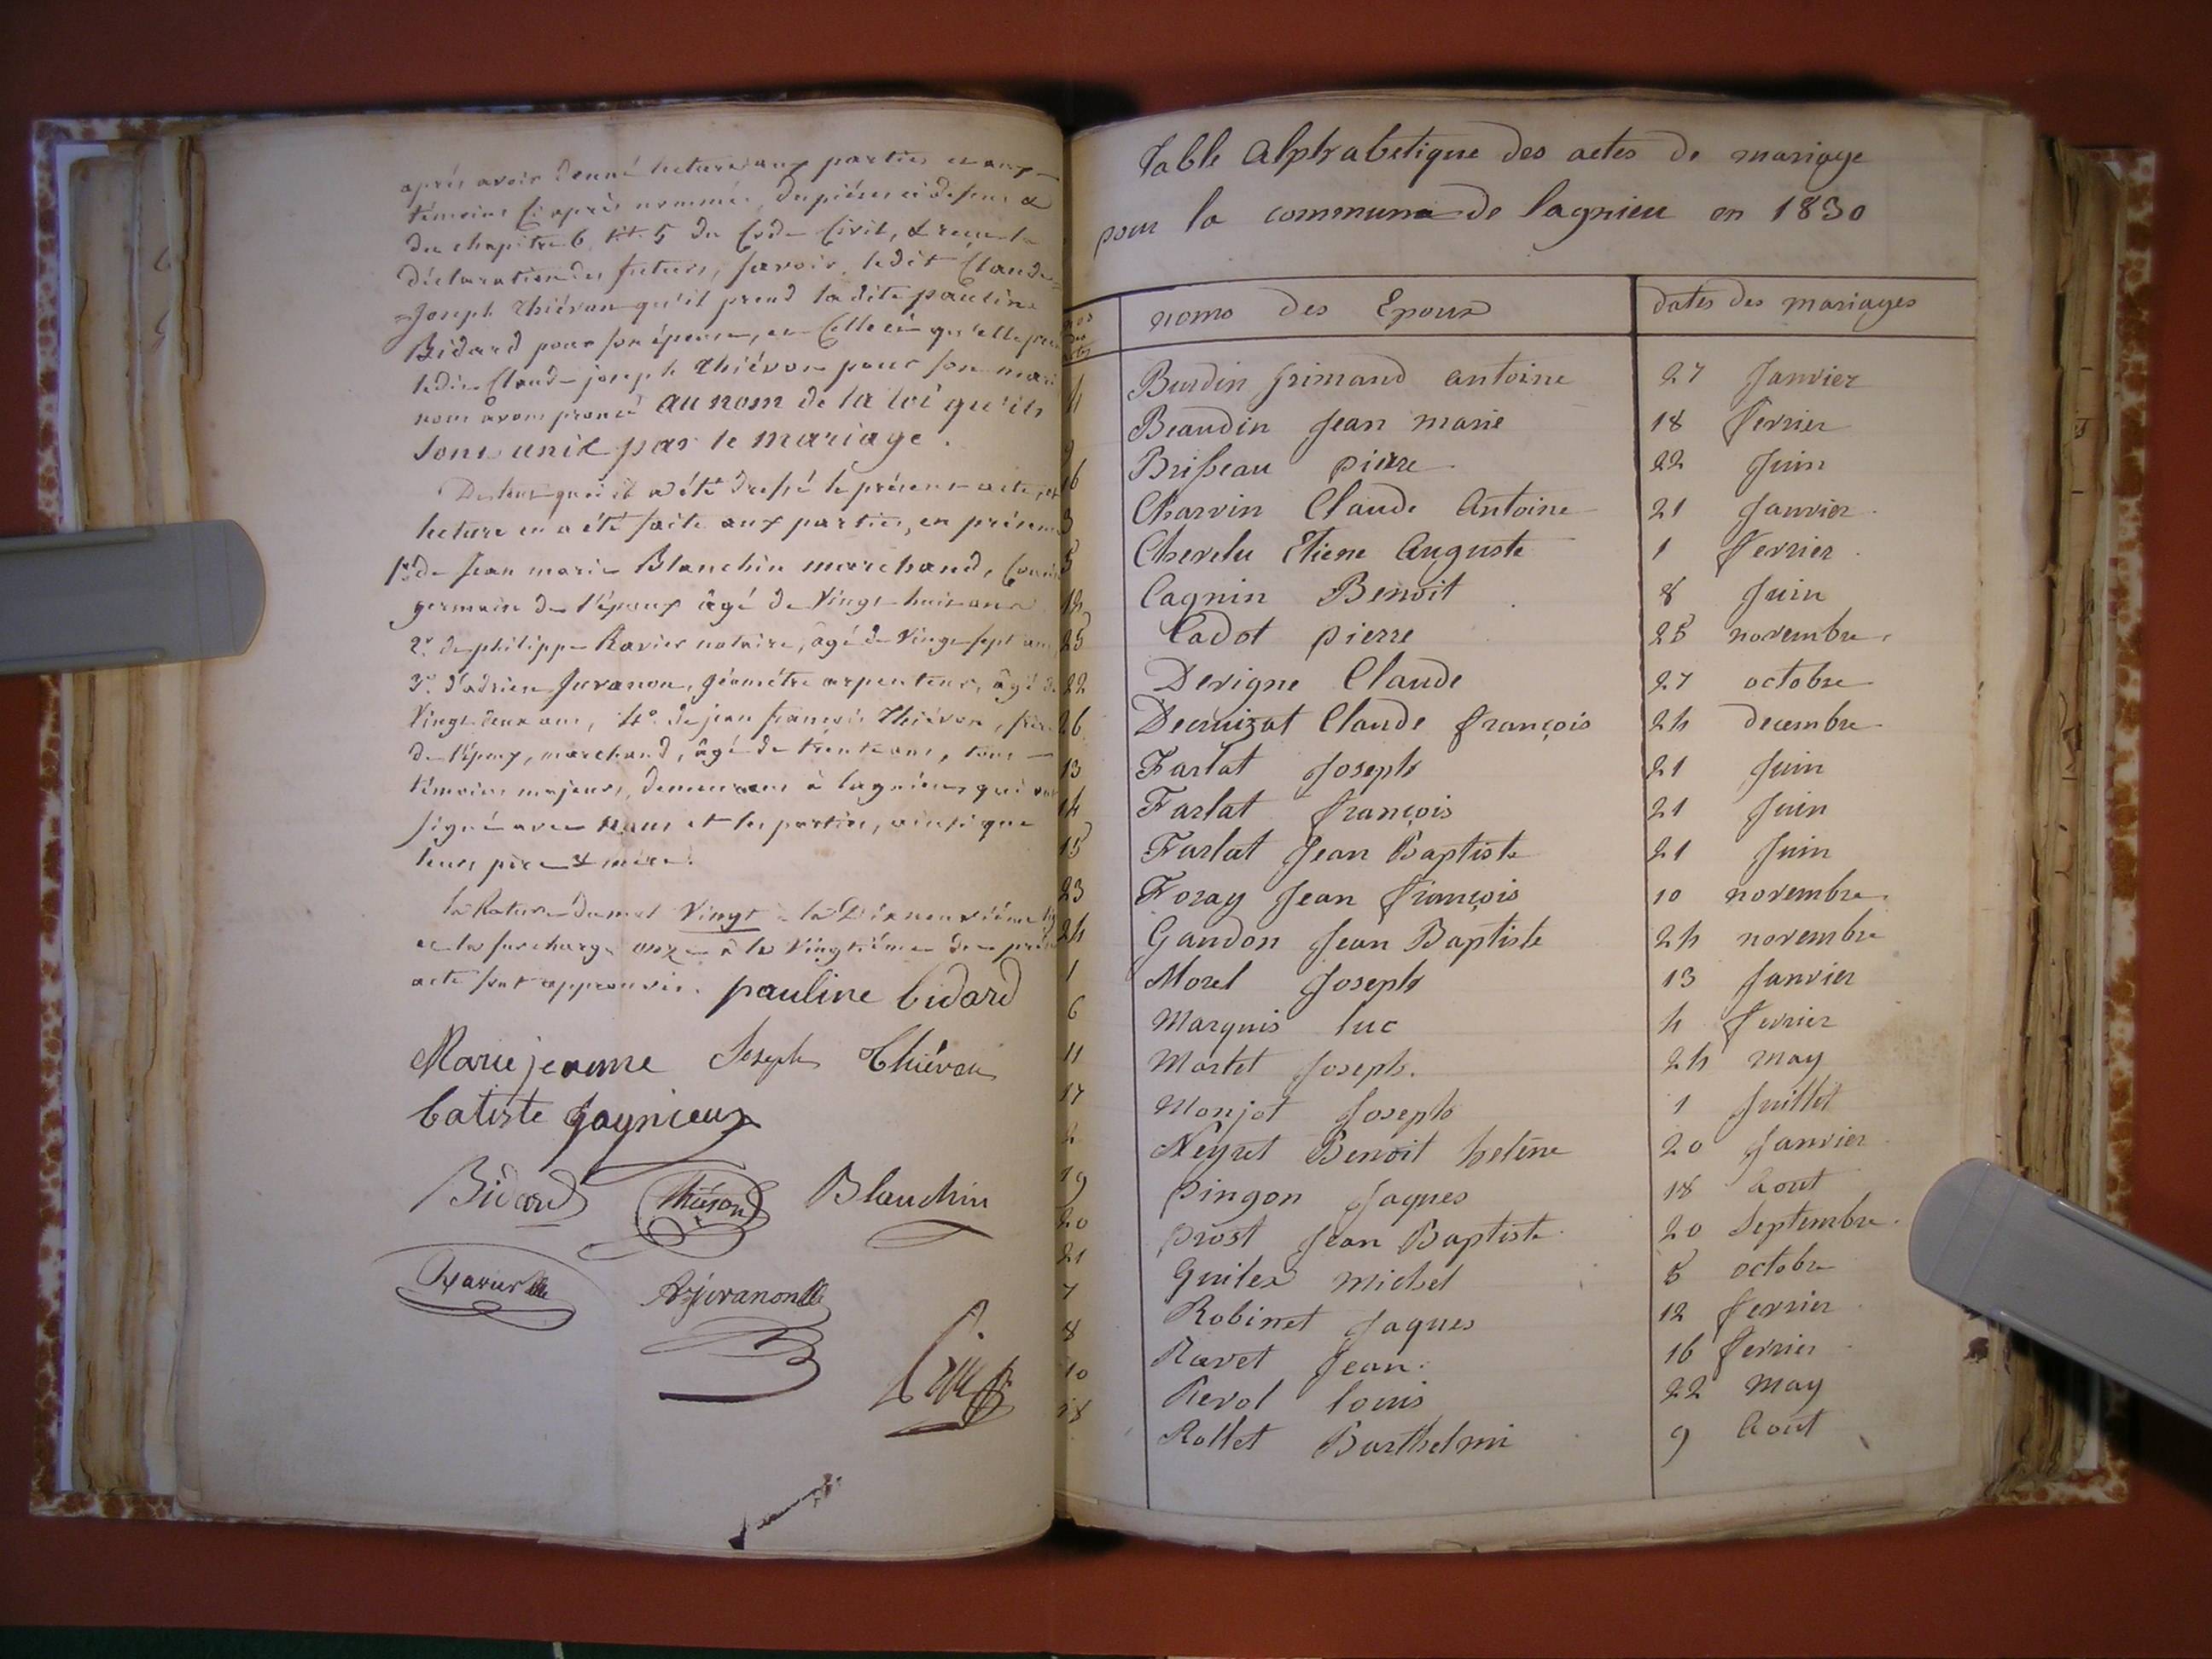 après avoir donné lecture aux parties et aux
témoins ci après nommés, des pièces ci dessus &
du chapitre 6 tit. 5 du Code Civil, & reçu la
déclaration des futurs, savoir, ledit Claude
Joseph Thiévon qu'il prend ladite pauline
Bidard pour son épouse, et Celle ci qu'elle
ledit Claude joseph Thiévon pour son mari
nous avons prononcé au nom de la loi qu'ils
sont unis par le mariage.
De tout quoi il a été dressé le présent acte, et
lecture en a été faite aux parties, en présence
1° de Jean marie Blanchin marchand, Cousin
germain de l'époux âgé de Vingt huit ans
2° de philippe Ravier notaire, âgé de Vingt sept ans
3° d'adrien Juvanon, géomètre arpenteur, âgé de
Vingt deux ans, 4° de jean françois Thiévon, frère
de l'époux, marchand, âgé de trente ans, tous
témoins majeurs, demeurans à lagnieu, qui ont
signé avec nous et les parties, ainsi que
leurs père & mère.
la Rature du mot Vingt à la Dixneuvième
et la surcharge onze à la Vingtième du
acte sont approuvées. pauline bidard
Marie jeanne Joseph Thiévon
batiste Jagnieux
Bidard Thiévon Blanchin
Ravier
Ajuvanon
Table Alphabetique des actes de mariage
pour la commune de lagnieu en 1830
nos des actes noms des Epoux dates des mariages
4 Burdin grimaud antoine 27 Janvier
9 Beaudin Jean marie 18 fevrier
16 Brisseau pierre 22 Juin
3 Charvin Claude Antoine 21 Janvier
5 Chevelu Etiene Auguste 1 fevrier
12 Cagnin Benoit 8 Juin
25 Cadot pierre 25 novembre
22 Devigne Claude 27 octobre
26 Decruizat Claude françois 24 decembre
13 Farlat Joseph 21 Juin
14 Farlat françois 21 Juin
15 Farlat Jean Baptiste 21 Juin
23 Foray Jean françois 10 novembre
24 Gandon Jean Baptiste 24 novembre
1 Morel Joseph 13 Janvier
6 Marquis luc 4 fevrier
11 Martet Joseph. 24 may
17 Monjot Joseph 1 Juillet
2 Neyret Benoit helène 20 Janvier
19 pingon Jaques 18 Aout
20 prost Jean Baptiste 20 Septembre
21 Guilex michel 5 octobre
7 Robinet Jaques 12 fevrier
8 Ravet Jean. 16 fevrier
10 Revol louis 22 may
18 Rollet Barthelmi 9 Aout